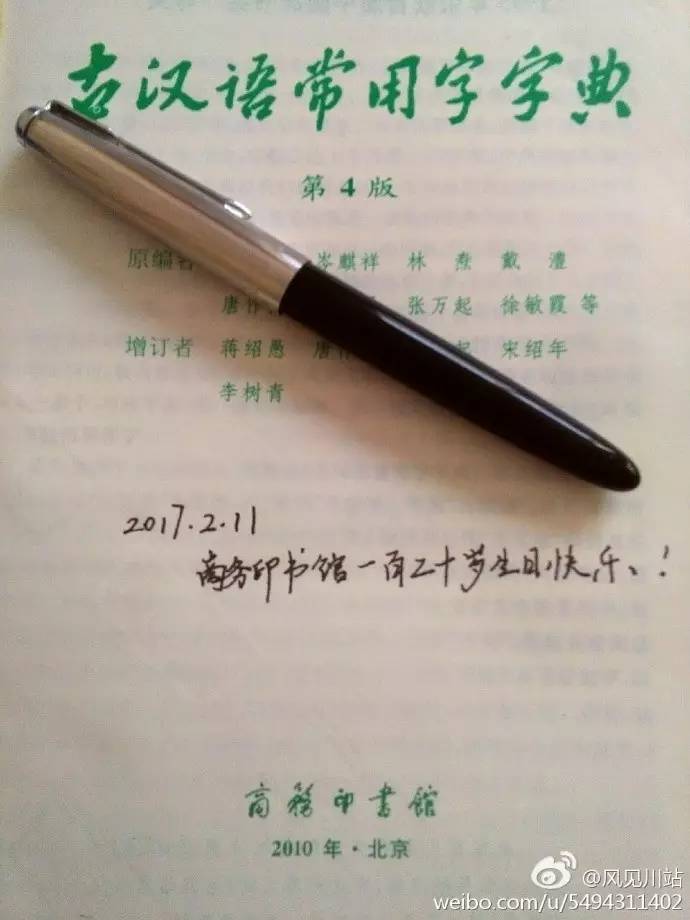 古汉语常用字字典
第4版
原编者 岑麒祥 林焘 戴澧
唐作 张万起 徐敏霞 等
增订者 蒋绍愚 唐 起 宋绍年
李树青
2017.2.11
商务印书馆一百二十岁生日快乐!
商務印書館
2010年·北京
@风见川站
weibo.com/u/5494311402